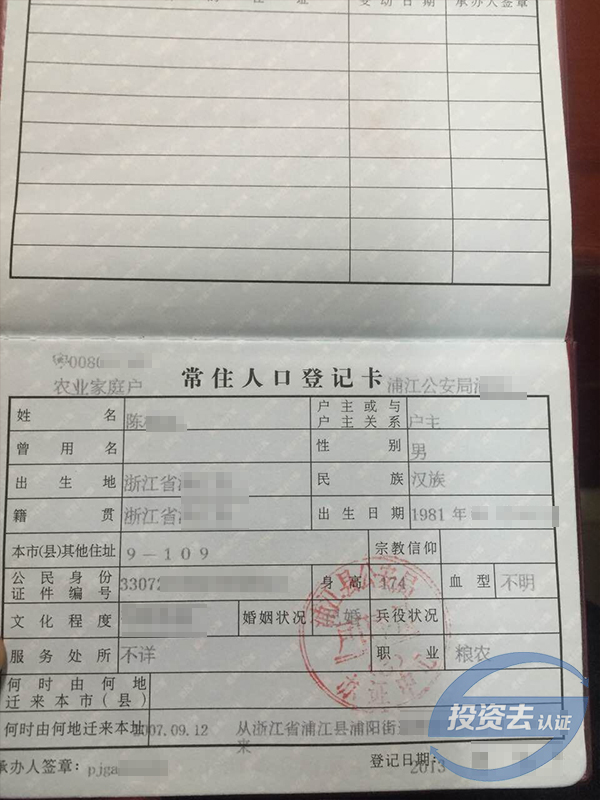 住 址 变动日期 承办人签章
0080
农业家庭户 常住人口登记卡 浦江公安局
姓 名 陈 户主或与户主关系 户主
曾用名 性 别 男
出生地 浙江省 民 族 汉族
籍 贯 浙江省 出生日期 1981年
本市(县)其他住址 9-109 宗教信仰
公民身份证件编号 33072 身高 174 血型 不明
文化程度 婚姻状况 婚 兵役状况
服务处所 不详 职 业 粮农
何时由何地迁来本市(县)
何时由何地迁来本址 07.09.12 从浙江省浦江县浦阳街
来
承办人签章: pjga 登记日期: 2013
浦江县公安局
投资去认证